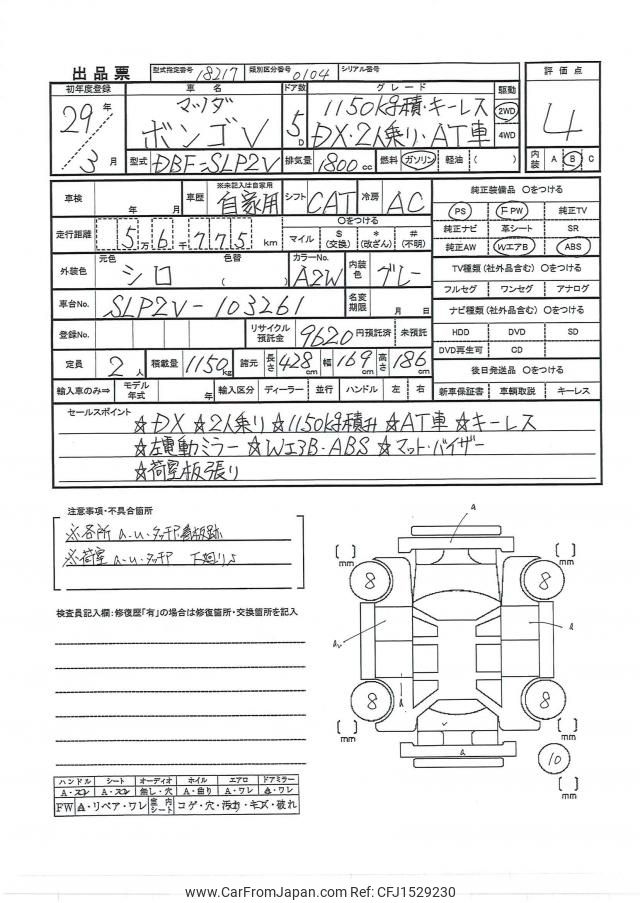 出品票 型式指定番号 18217 類別区分番号 0104 シリアル番号
初年度登録 車名 ドア数 グレード 駆動 評価点
29年 マツダ 5D 1150kg積・キーレス 2WD 4
3月 ボンゴV DX・2人乗り・AT車 4WD
型式 DBF-SLP2V 排気量 1800cc 燃料 ガソリン 軽油 ( ) 内装 A B C
車検 年 月 車歴 ※未記入は自家用 自家用 シフト CAT 冷房 AC
走行距離 5万6千775km マイル ○をつける $(交換) *(改ざん) #(不明)
外装色 元色 シロ 色替 ( ) カラーNo. A2W 内装色 グレー
車台No. SLP2V-103261 名変期限 月 日
登録No. リサイクル預託金 9620円預託済 未預託
定員 2人 積載量 1150kg 諸元 長さ 428cm 幅 169cm 高さ 186cm
輸入車のみ⇒ モデル年式 年 輸入区分 ディーラー 並行 ハンドル 左 右
純正装備品 ○をつける
PS PW 純正TV
純正ナビ 革シート SR
純正AW WエアB ABS
TV種類(社外品含む) ○をつける
フルセグ ワンセグ アナログ
ナビ種類(社外品含む) ○をつける
HDD DVD SD
DVD再生可 CD
後日発送品 ○をつける
新車保証書 車輌取説 キーレス
セールスポイント
☆DX ☆2人乗り ☆1150kg積み ☆AT車 ☆キーレス
☆左電動ミラー ☆WエアB・ABS ☆マット・バイザー
☆荷室板張り
注意事項・不具合箇所
※各所 a.u.タッチP.看板跡
※荷室 a.u.タッチP 下廻りS
検査員記入欄:修復歴「有」の場合は修復箇所・交換箇所を記入
a
[ ]mm [ ]mm
8 8
a
8 8
a
[ ]mm [ ]mm
a
10
[ ]mm
ハンドル シート オーディオ ホイル エアロ ドアミラー
A・スレ A・スレ 無し・穴 A・曲り A・ワレ A・ワレ
FW A・リペア・ワレ 室内シート コゲ・穴・汚れ・キズ・破れ
www.CarFromJapan.com Ref: CFJ1529230